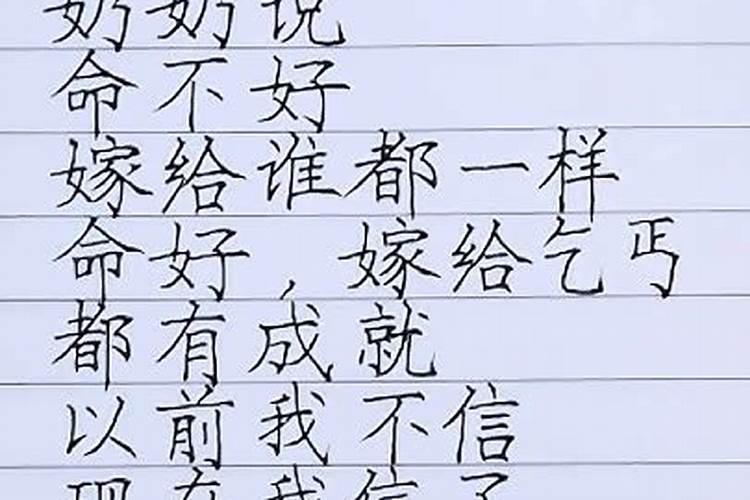 奶奶说
命不好
嫁给谁都一样
命好，嫁给乞丐
都有成就
以前我不信
现在我信了